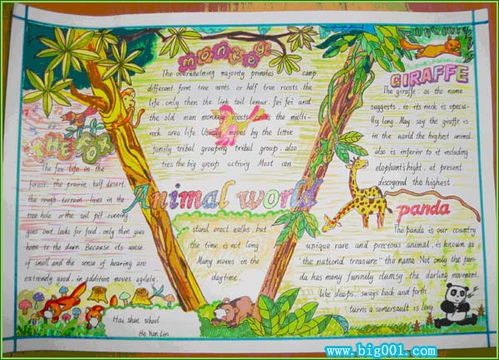 monkey
The overwhelming majority primates camp
different form tree roots or half tree roots the
life, only then the link tail lemur, fei fei and
the old man monkey roosts the multi-
rock area life. Usually moves by the little
family tribal grouping tribal group, also
ties the big group activity. Most can
stand erect walks, but
the time is not long.
Many moves in the
daytime.
THE FOX
The fox life in the
forest, the prairie, half desert,
the rough terrain, lives in the
tree hole or the soil pit cunning
goes out looks for food, only then goes
home to the dawn. Because its sense
of smell and the sense of hearing are
extremely good, in addition moves agilely,
Animal world
GIRAFFE
The giraffe, as the name
suggests, is its neck is specia-
lly long. May say the giraffe is
in the world the highest animal.
also is inferior to it including
elephant's hight, at present
discovered the highest
panda
The panda is our country
unique rare and precious animal, is known as
"the national treasure" the name. Not only the pan-
da has many funnily clumsy, the darling movement,
like sleeps, swings back and forth,
turns a somersault is lovely
Hai shan school
He Yan Lin
www.big001.com